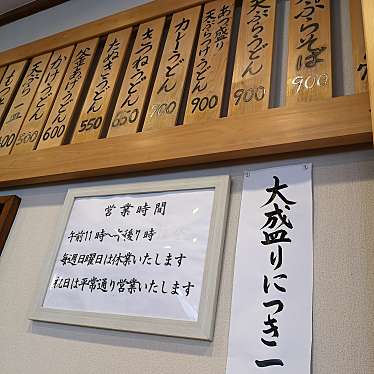 ぷらそば 900
天ぷらうどん 900
あつ盛り天ぷらつけうどん 900
カレーうどん 900
きつねうどん 650
たぬきうどん 550
釜あげうどん 600
かけうどん 500
天ぷら一皿
営業時間
午前11時〜午後7時
毎週日曜日は休業いたします
祝日は平常通り営業いたします
大盛りにつき一